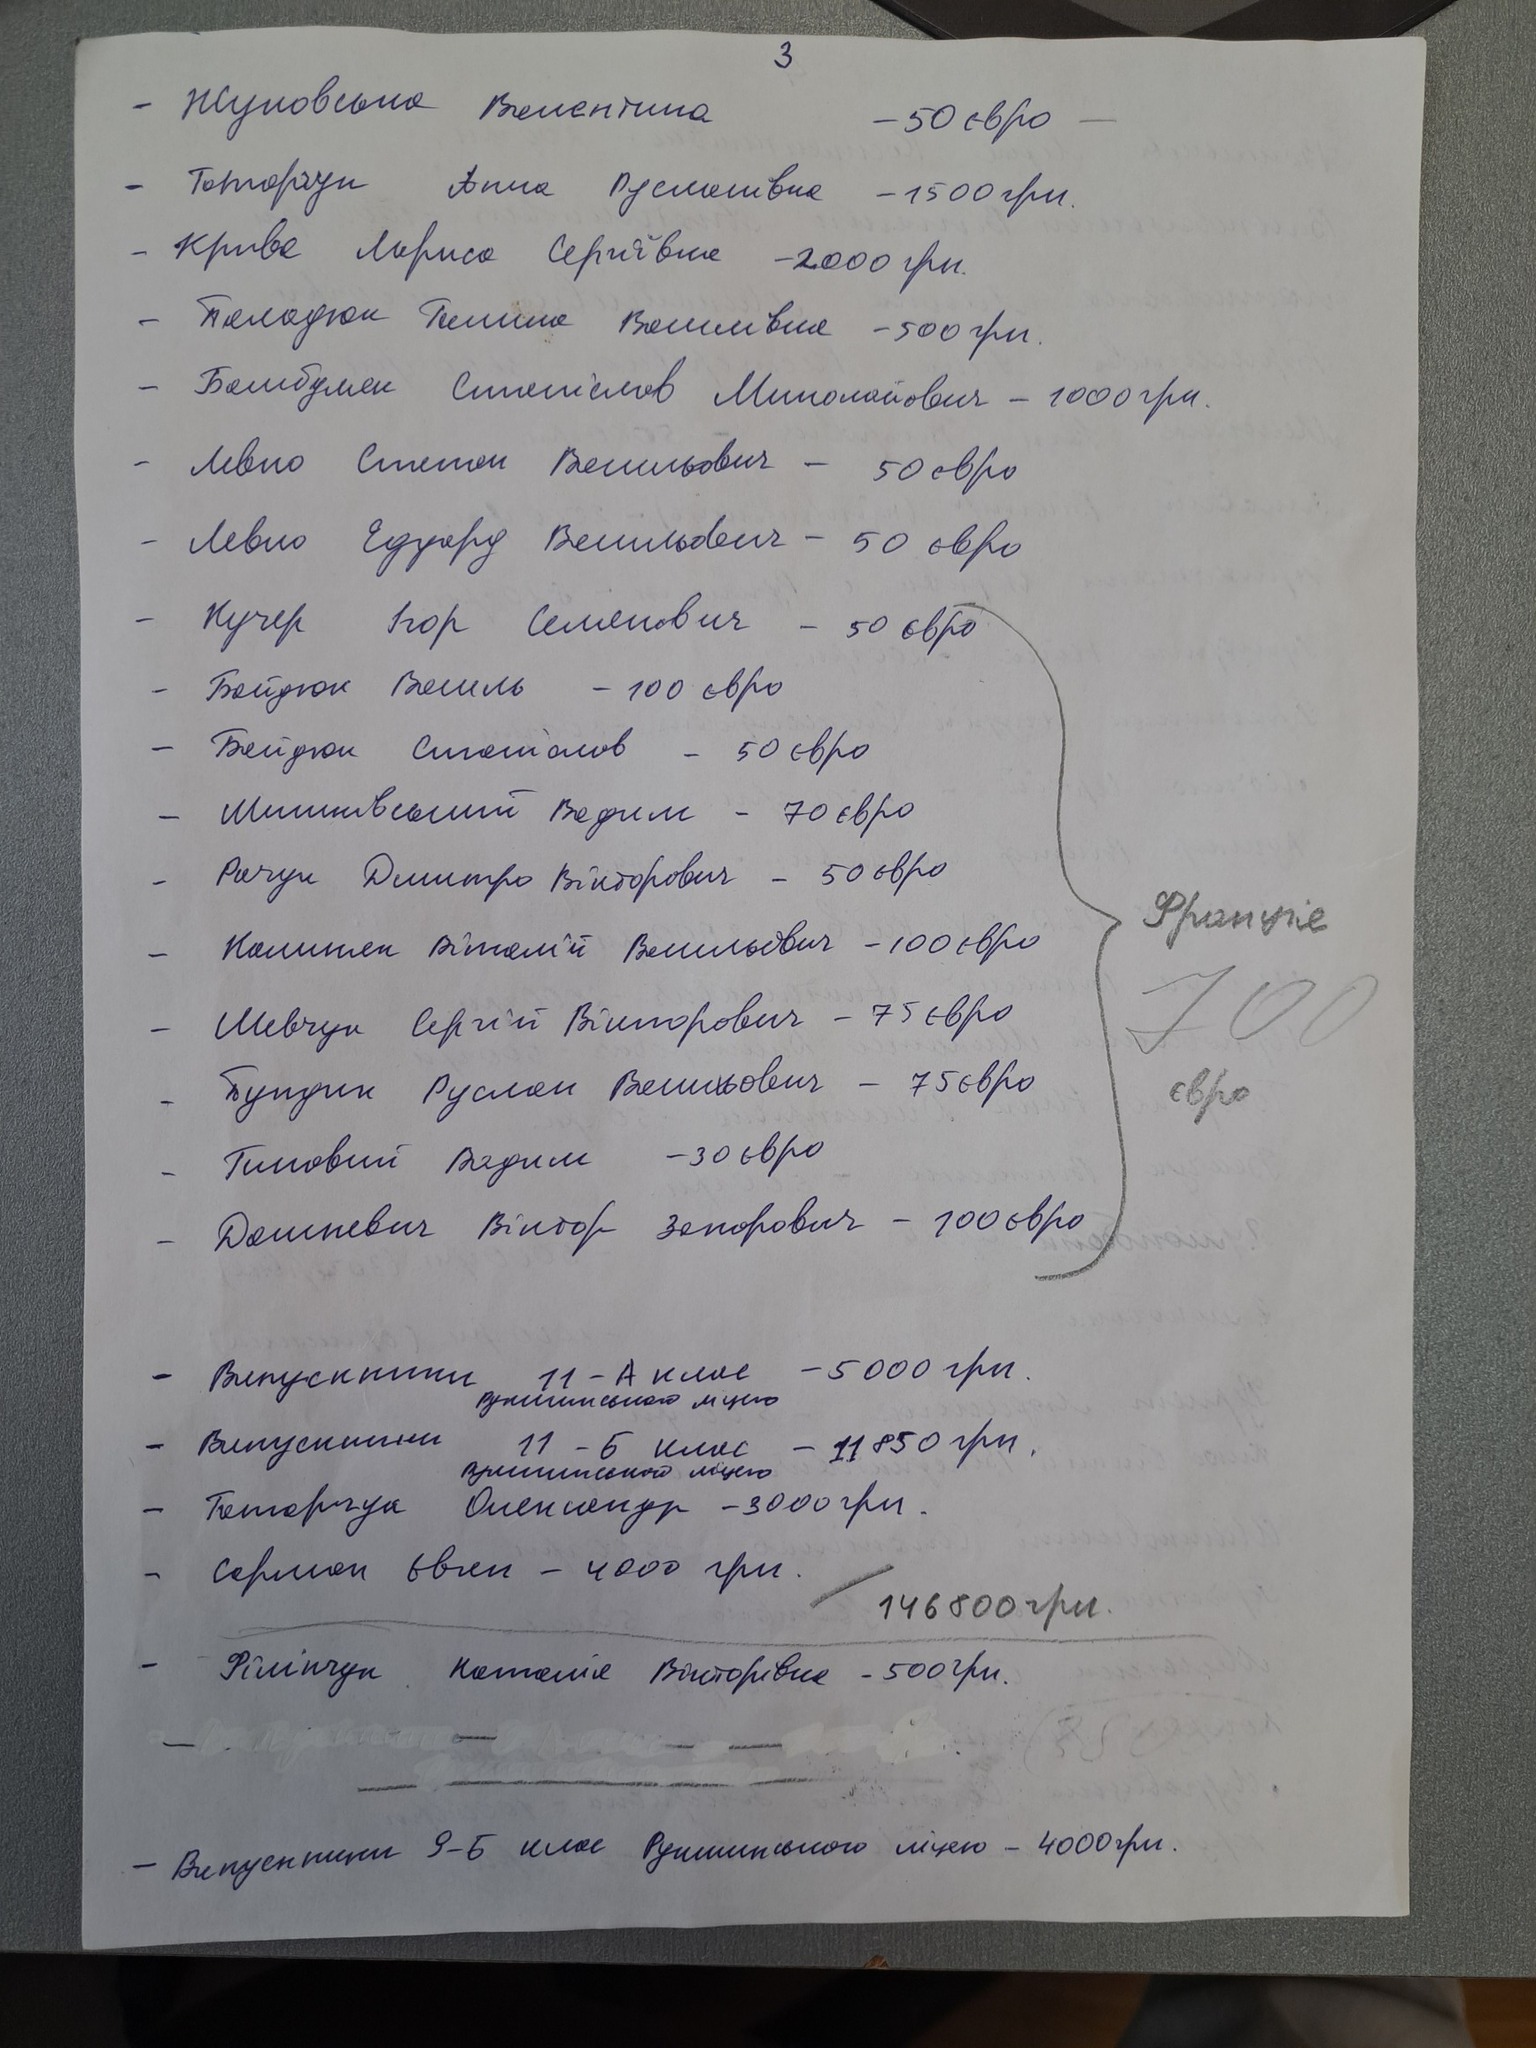 3
- Жуковська Валентина - 50 євро -
- Татарчук Анна Русланівна - 1500 грн.
- Крива Лариса Сергіївна - 2000 грн.
- Паладюк Галина Василівна - 500 грн.
- Бамбуляк Станіслав Миколайович - 1000 грн.
- Левко Степан Васильович - 50 євро
- Левко Едуард Васильович - 50 євро
- Кучер Ігор Семенович - 50 євро
- Байдюк Василь - 100 євро
- Байдюк Станіслав - 50 євро
- Вадим - 70 євро
- Рачук Дмитро Вікторович - 50 євро
- Калиняк Віталій Васильович - 100 євро
Франція
- Шевчук Сергій Вікторович - 75 євро
700
- Руслан Васильович - 75 євро
євро
- Гиповий Вадим - 30 євро
- Дашкевич Віктор Захарович - 100 євро
- Випускники 11 - А клас - 5000 грн.
ліцею
- Випускники 11 - Б клас - 11850 грн.
ліцею
- Татарчук Олександр - 3000 грн.
- Сарман Євген - 4000 грн.
146800 грн.
- Філіпчук Наталія Вікторівна - 500 грн.
- Випускники 9-Б клас Рукшинського ліцею - 4000 грн.